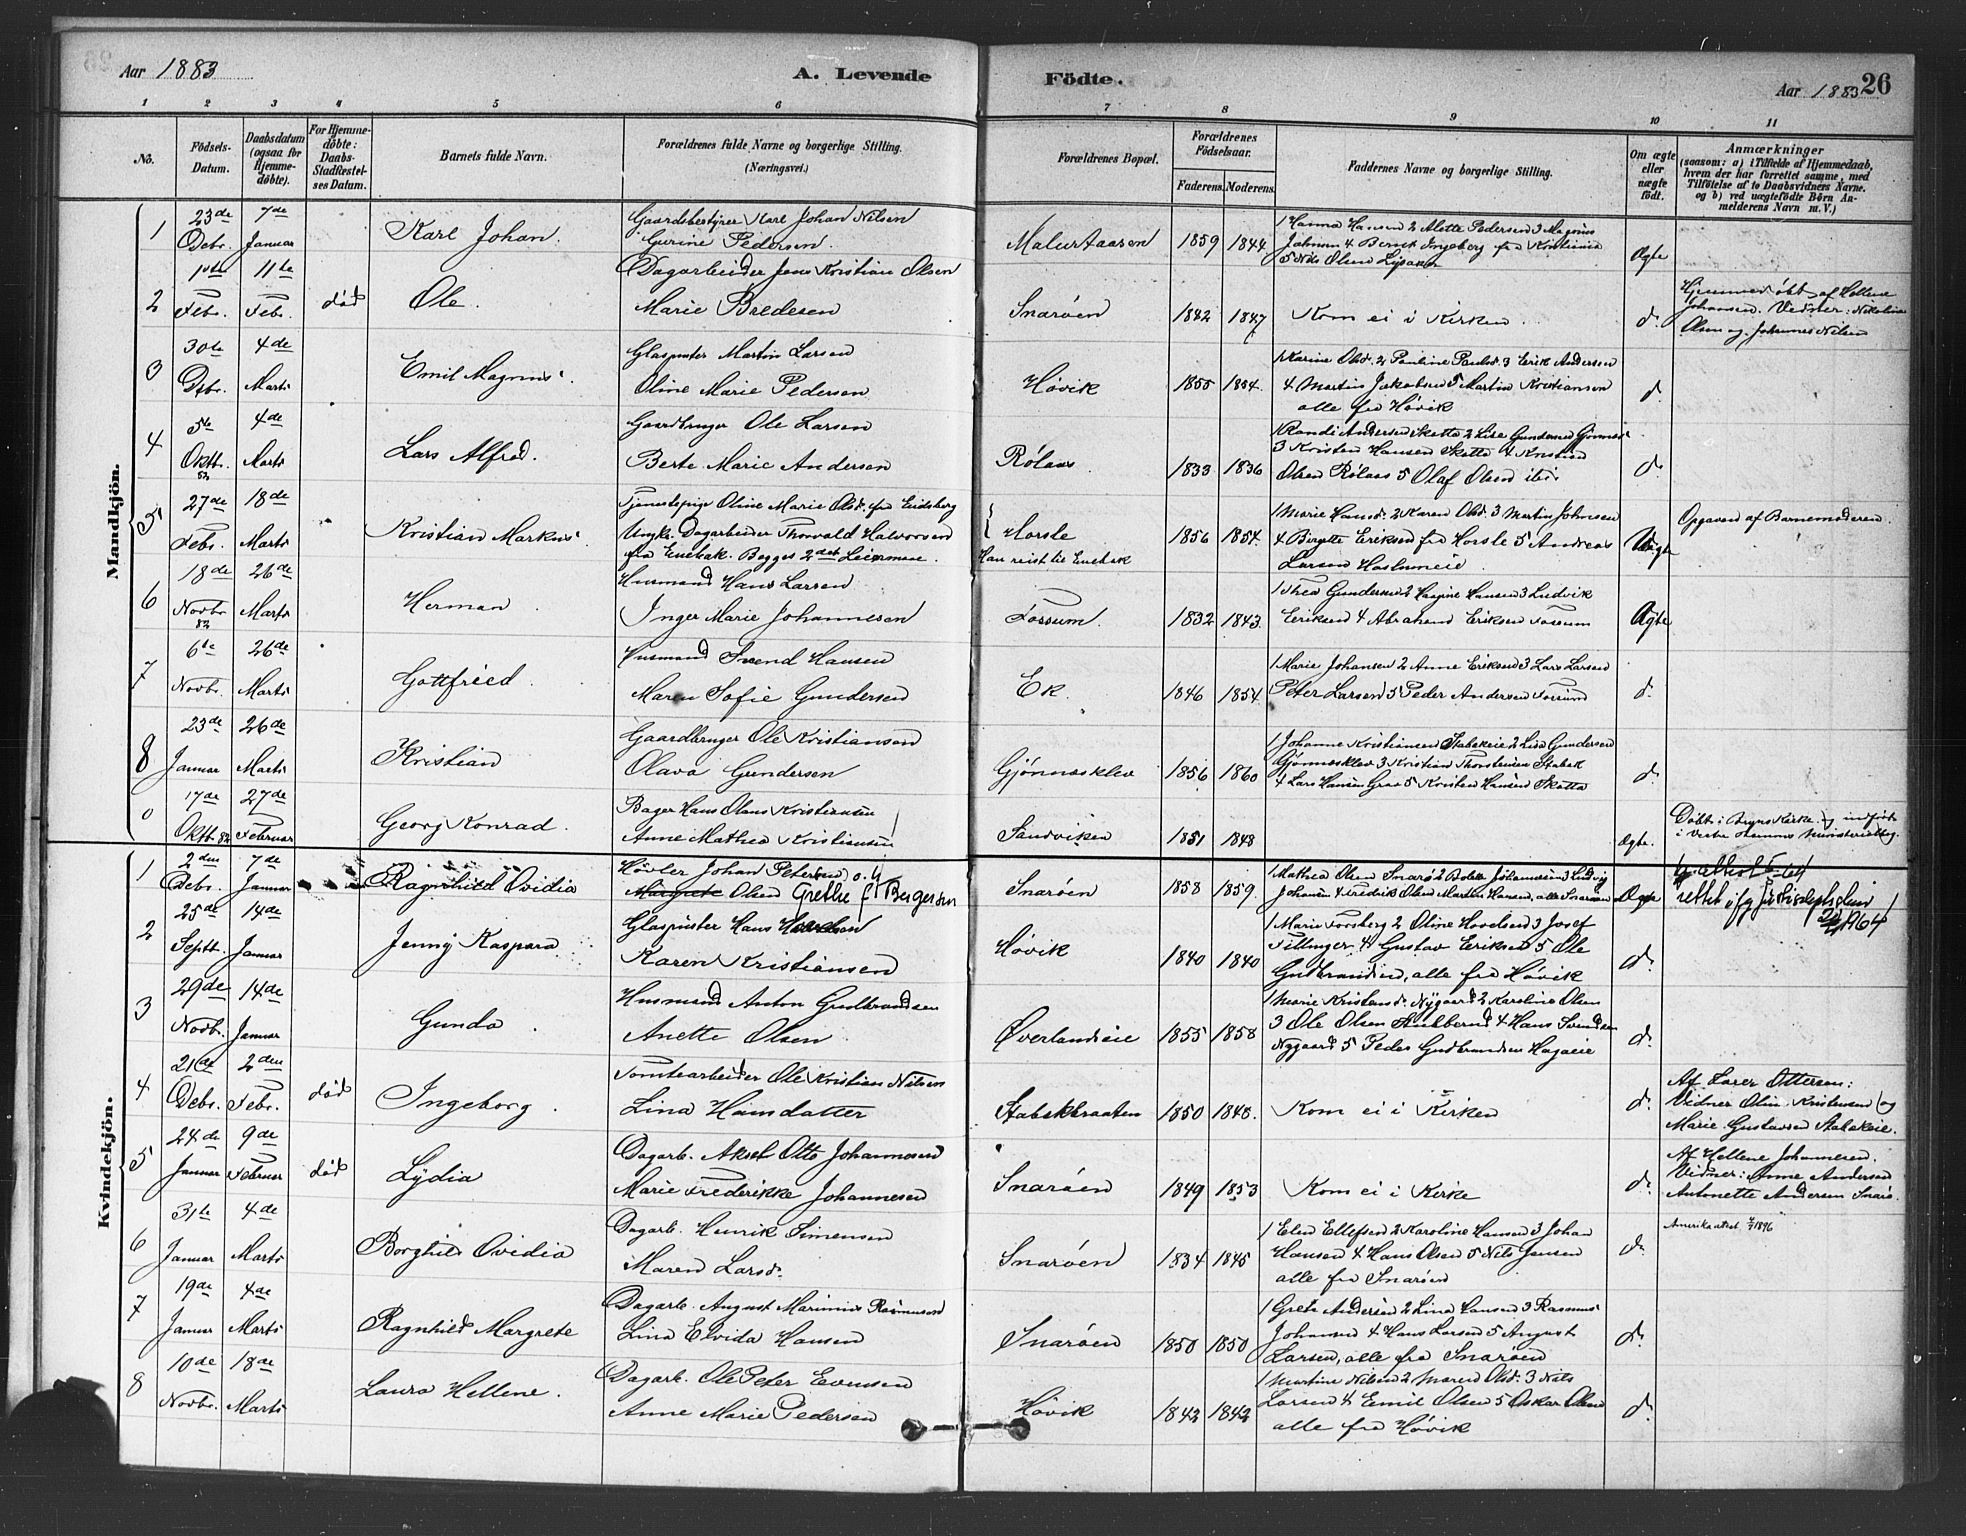 Aar 1883
A. Levende
Födte.
Aar 1883
26
1 2 3 4 5 6 7 8 9 10 11
No.
Födsels-Datum.
Daabsdatum (ogsaa for Hjemme-döbte).
For Hjemme-döbte: Daabs-Stadfæstel-ses Datum.
Barnets fulde Navn.
Forældrenes fulde Navne og borgerlige Stilling. (Næringsvei.)
Forældrenes Bopæl.
Forældrenes Födselsaar.
Faderens. Moderens.
Faddernes Navne og borgerlige Stilling.
Om ægte eller uægte födt.
Anmærkninger
(saasom: a) i Tilfælde af Hjemmedaab, hvem der har forrettet samme, med Tilföielse af to Daabsvidners Navne. og b) ved uægtefödte Börn An-melderens Navn m. V.)
Mandkjön.
1 23de Debr. 7de Januar Karl Johan.
Gaardsbestyrer Karl Johan Nilsen
Gurine Pedersen.
1859 1844
1 Hanna Hansen 2 Alette Pedersen 3 Magnus
Johnsen 4 Bernt Ingeberg fra Kristiania
5 Nils Olsen Lysaker
Ægte
2 1ste Febr. 11te Febr. död Ole.
Dagarbeider Jens Kristian Olsen
Marie Bredesen
Snaröen 1842 1847 Kom ei i Kirken. d.
Hjemmedöbt af Hellene
Johansen. Vidner: Nikoline
Olsen og Johannes Nilsen
3 30te Debr. 4de Marts Emil Magnus.
Glaspuster Martin Larsen
Oline Marie Pedersen
Hövik 1855 1854.
1 Karine Olsd. 2 Pauline Paulsd. 3 Erik Andersen
4 Martin Jakobsen 5 Martin Kristiansen
alle fra Hövik
d.
4 5te Oktb. 82 4de Marts Lars Alfred.
Gaardbruger Ole Larsen
Berte Marie Andersen
Rölaas 1833 1836
1 Randi Andersen Skatta 2 Lise Gundersen
3 Kristen Hansen Skatta 4 Kristian
Olsen Rölaas 5 Olaf Olsen ibid.
d.
5 27de Febr. 18de Marts Kristian Markus.
Tjenestepige Oline Marie Olsd. fra Eidsberg
Ungk. Dagarbeider Thorvald Halvorsen
fra Enebak. Begges 2det Leiermaal.
Horsle
Han reist til Enebak
1856 1854.
1 Marie Hansd. 2 Karen Olsd. 3 Martin Johnsen
4 Birgitte Eriksen fra Horsle 5 Andreas
Larsen Haslumeie.
Uægte
Opgaven af Barnemoderen.
6 18de Novbr. 82 26de Marts Herman
Husmand Hans Larsen
Inger Marie Johannesen
Fossum. 1832 1843.
1 Thea Gundersen 2 Hagine Hansen 3 Ludvik
Eriksen 4 Abraham Eriksen Fossum
Ægte
7 6te Novbr. 26de Marts Gottfried.
Husmand Svend Hansen
Maren Sofie Gundersen
Ek. 1846 1854
1 Marie Johansen 2 Anne Eriksen 3 Lars Larsen
Peter Larsen 5 Peder Andersen Fossum
d.
8 23de Januar 26de Marts Kristian
Gaardbruger Ole Kristiansen
Olava Gundersen
Gjönnesklev 1856 1860
1 Johanne Kristiansen Stabekeie 2 Lise Gundersen
Gjönnesklev 3 Kristian Thorstensen Stabek
4 Lars Hansen Graa 5 Kristen Hansen Skatta
d.
0 17de Oktb. 82 27de Februar Georg Konrad.
Bager Hans Olaus Kristiansen
Anne Mathea Kristiansen
Sandviken 1851 1848 Ægte.
Döbt i Kirke og indfört
i Ministerialbog.
Kvindekjön.
1 2den Debr. 7de Januar Ragnhild Ovidia
Hövler Johan Petersen
Margrete Olsen Grethe f. Bergersen
Snaröen 1858 1859.
1 Mathea Olsen Snarö 2 Bolette Johannesen 3 Ludvig
Johansen 4 Fredrik Olsen Martin Hansen, alle Snaröen
Ægte
rettet ifg Justisdeptets skriv
1964
2 25de Septb. 14de Januar Jenny Kaspara.
Glaspuster Hans
Karen Kristiansen
Hövik 1840 1840
1 Marie Forsberg 2 Oline Hovelsen 3 Josef
Fillinger 4 Gustav Eriksen 5 Ole
Gudbrandsen, alle fra Hövik
d.
3 29de Novbr. 14de Januar Gunda.
Husmand Anton Gudbrandsen
Anette Olsen
Øverlandseie 1855 1858
1 Marie Kristensd. Nygaard 2 Karoline Olsen
3 Ole Olsen 4 Hans Svendsen
Nygaard 5 Peder Gudbrandsen Hagaeie
d.
4 21de Debr. 2den Febr. död Ingeborg.
Tomtearbeider Ole Kristian Nilsen
Lina Hansdatter
Stabekbraaten 1850 1848. Kom ei i Kirken d.
Af Larer Ottersen:
Vidner Olin Kristensen og
Marie Gustavsen Stabekeie.
5 24de Januar 9de Februar död Lydia
Dagarb. Aksel Otto Johannesen
Marie Frederikke Johannesen
Snaröen 1849 1853 Kom ei i Kirke d.
Af Hellene Johannesen.
Vidner: Anne Andersen
Antonette Andersen Snarö.
6 31te Januar 4de Marts Borghild Ovidia
Dagarb. Henrik Simensen
Maren Larsd.
Snaröen 1834 1845
1 Elen Ellefsen 2 Karoline Hansen 3 Johan
Hansen 4 Hans Olsen 5 Nils Jensen
alle fra Snaröen
d.
Amerika attest 1896
7 19de Januar 4de Marts Ragnhild Margrete
Dagarb. August Marinius Rasmussen
Lina Elvida Hansen
Snaröen 1850 1850
1 Grete Andersen 2 Lina Hansen 3 Rasmus
Johansen 4 Hans Larsen 5 August
Larsen, alle fra Snaröen
d.
8 10de Novbr. 18de Marts Laura Hellene.
Dagarb. Ole Peter Evensen
Anne Marie Pedersen
Hövik 1842 1842
1 Martine Nilsen 2 Maren Olsd. 3 Nils
Larsen 4 Emil Olsen 5 Oskar Olsen
alle fra Hövik
d.